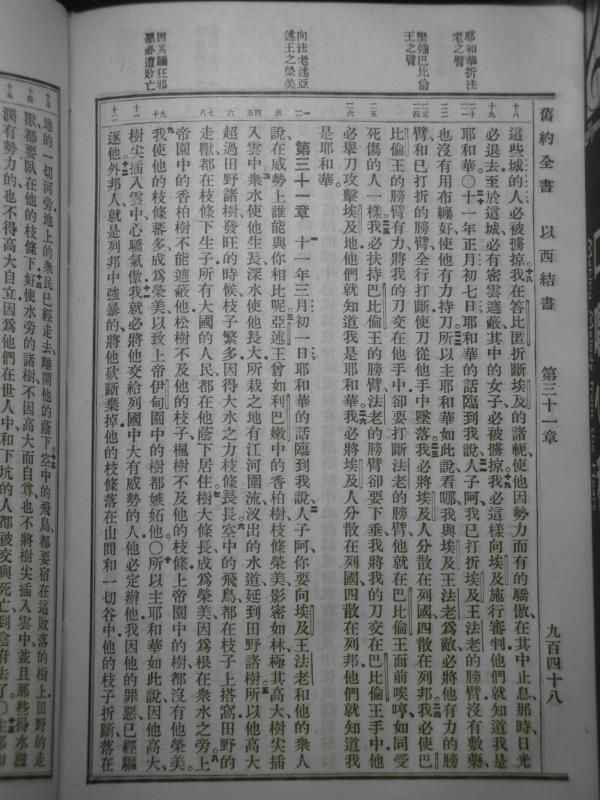 舊約全書 以西結書 第三十一章 九百四十八
耶和華折法
老之臂
堅強巴比倫
王之臂
向法老述亞
述王之榮美
因其驕狂邪
惡必遭敗亡
這些城的人必被擄掠我在答比匿折斷埃及的諸軛使他因勢力而有的驕傲在其中止息那時日光
必退去至於這城必有密雲遮蔽其中的女子必被擄掠我必這樣向埃及施行審判他們就知道我是
耶和華〇十一年正月初七日耶和華的話臨到我說人子阿我已打折埃及王法老的膀臂沒有敷藥
也沒有用布纏好使他有力持刀所以主耶和華如此說看哪我與埃及王法老為敵必將他有力的膀
臂和已打折的膀臂全行打斷使刀從他手中墜落我必將埃及人分散在列國四散在列邦我必使巴
比倫王的膀臂有力將我的刀交在他手中卻要打斷法老的膀臂他就在巴比倫王面前唉哼如同受
死傷的人一樣我必扶持巴比倫王的膀臂法老的膀臂卻要下垂我將我的刀交在巴比倫王手中他
必舉刀攻擊埃及地他們就知道我是耶和華我必將埃及人分散在列國四散在列邦他們就知道我
是耶和華
第三十一章 十一年三月初一日耶和華的話臨到我說人子阿你要向埃及王法老和他的衆人
說在威勢上誰能與你相比呢亞述王曾如利巴嫩中的香柏樹枝條榮美影密如林極其高大樹尖插
入雲中衆水使他生長深水使他長大所栽之地有江河圍流汊出的水道延到田野諸樹所以他高大
超過田野諸樹發旺的時候枝子繁多因得大水之力枝條長長空中的飛鳥都在枝子上搭窩田野的
走獸都在枝條下生子所有大國的人民都在他蔭下居住樹大條長成為榮美因為根在衆水之旁上
帝園中的香柏樹不能遮蔽他松樹不及他的枝子楓樹不及他的枝條上帝園中的樹都沒有他榮美
我使他的枝條蕃多成為榮美以致上帝伊甸園中的樹都嫉妬他〇所以主耶和華如此說因他高大
樹尖插入雲中心驕氣傲我就必將他交給列國中大有威勢的人他必定辦他我因他的罪惡已經驅
逐他外邦人就是列邦中強暴的將他砍斷棄掉他的枝條落在山間和一切谷中他的枝子折斷落在
地的一切河旁地上的衆民已經走去離開他的蔭下空中的飛鳥都要宿在這敗落的樹上田野的走
獸都要臥在他的枝條下好使水旁的諸樹不因高大而自尊也不將樹尖插入雲中並且那些得水滋
潤有勢力的也不得高大自立因為他們在世人中和下坑的人都被交與死亡到陰府去了〇主耶和